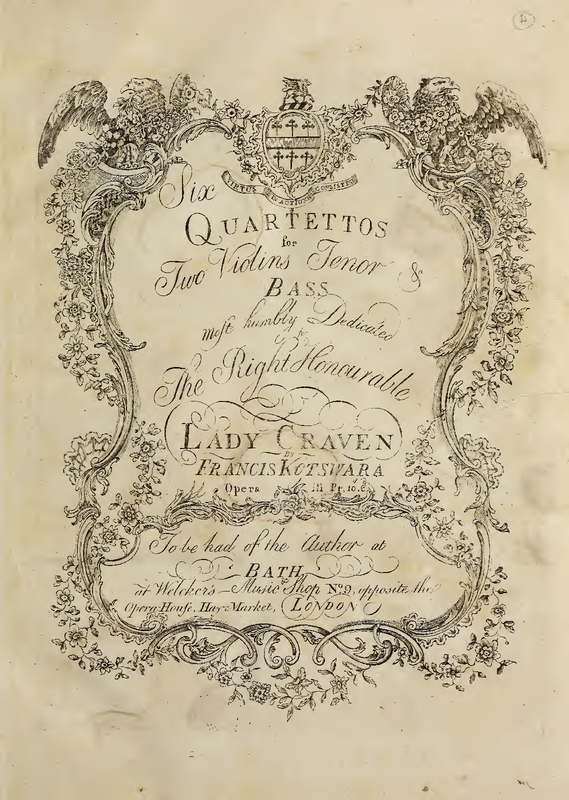 VIRTUS IN ACTIONE CONSISTIT
Six
QUARTETTOS
for
Two Violins Tenor &
BASS
most humbly Dedicated
to
The Right Honourable
LADY CRAVEN
BY
FRANCIS KOTSWARA
Opera III Pr. 10.6
To be had of the Author at
BATH
at Welcker's Music Shop No. 9, opposite the
Opera House, Hay-Market, LONDON